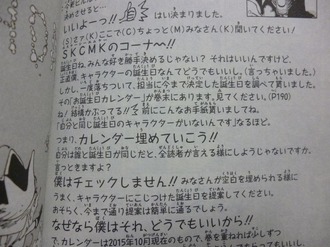 決めさせると…
いいよーっ!! は決まりました。
(S)さて(K)ここで(C)ちょっと(M)みなさん(K)聞いてください!
SKCMKのコーナ〜!!
誕生日ね、みんな好き勝手決めるじゃない? それはいいんですけど、
正直僕、キャラクターの誕生日なんてどうでもいいし、(言っちゃいました。)
しかし一度落ちついて、担当に今まで決定した誕生日を調べてもらいました。
その「お誕生日カレンダー」が巻末にあります。見てください。(P190)
ね! 結構かぶってる!! 前にこんなお手紙貰いましてね、
「自分と同じ誕生日のキャラクターがいないんです」なるほど。
つまり、カレンダー埋めていこう!!
自分は誰と誕生日が同じだと、全読者が言える様にしようじゃないですか。
言っときますよ?
僕はチェックしません!! みなさんが空日を埋められる様に
うまく、キャラクターにこじつけた誕生日を提案してください。
おそらく、今まで通り提案は簡単に通るでしょう。
なぜなら僕はそれ、どうでもいいから!!
で、カレンダーは2015年10月現在のもので、